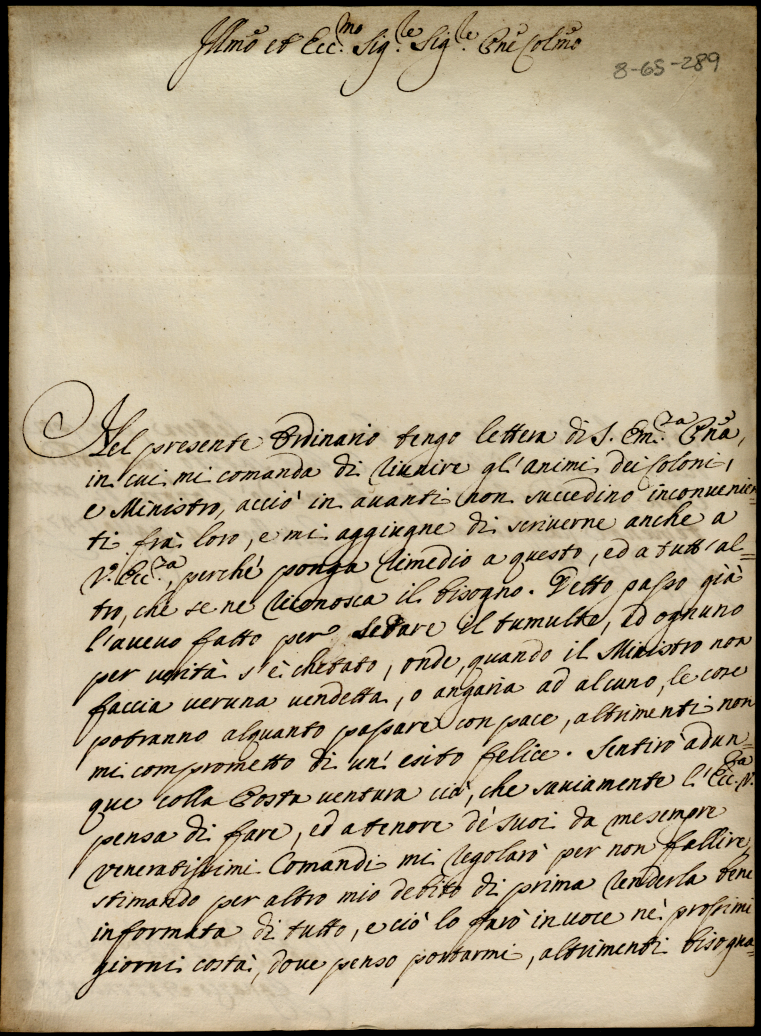 Illmo et Ecc.mo Sig.re Sig.re Pne Colmo
8-65-289
Nel presente Ordinario tengo lettera di S. Em.za Pna,
in cui mi comanda di riunire gl'animi dei Coloni,
e Ministro, acciò in avanti non succedino inconvenien=
ti frà loro, e mi aggiugne di scriverne anche a
V.ª Ecc.za, perché ponga rimedio a questo, ed a tutt'al=
tro, che se ne riconosca il bisogno. Detto passo già
l'avevo fatto per sedare il tumulto, ed ognuno
per verità s'è chetato, onde, quando il Ministro non
faccia veruna vendetta, o angaria ad alcuno, le cose
potranno alquanto passare con pace, altrimenti non
mi comprometto di un' esito felice. Sentirò adun=
que colla Posta ventura ciò, che saviamente l'Ecc.za V.ª
pensa di fare, ed a tenore de' suoi da me sempre
veneratissimi Comandi mi regolarò per non fallire,
stimando per altro mio debito di prima renderla bene
informata di tutto, e ciò lo farò in voce né prossimi
giorni costà, dove penso portarmi, altrimenti bisogna=